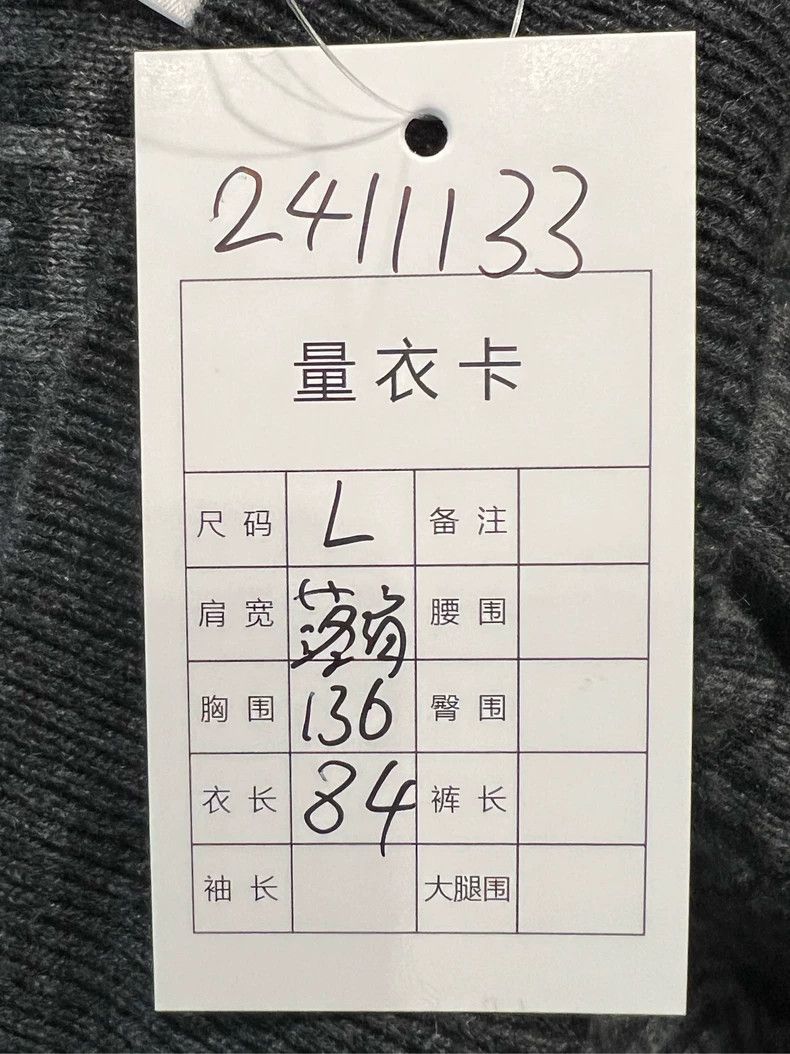 2411133
量衣卡
尺码 L 备注
肩宽 落肩 腰围
胸围 136 臀围
衣长 84 裤长
袖长 大腿围